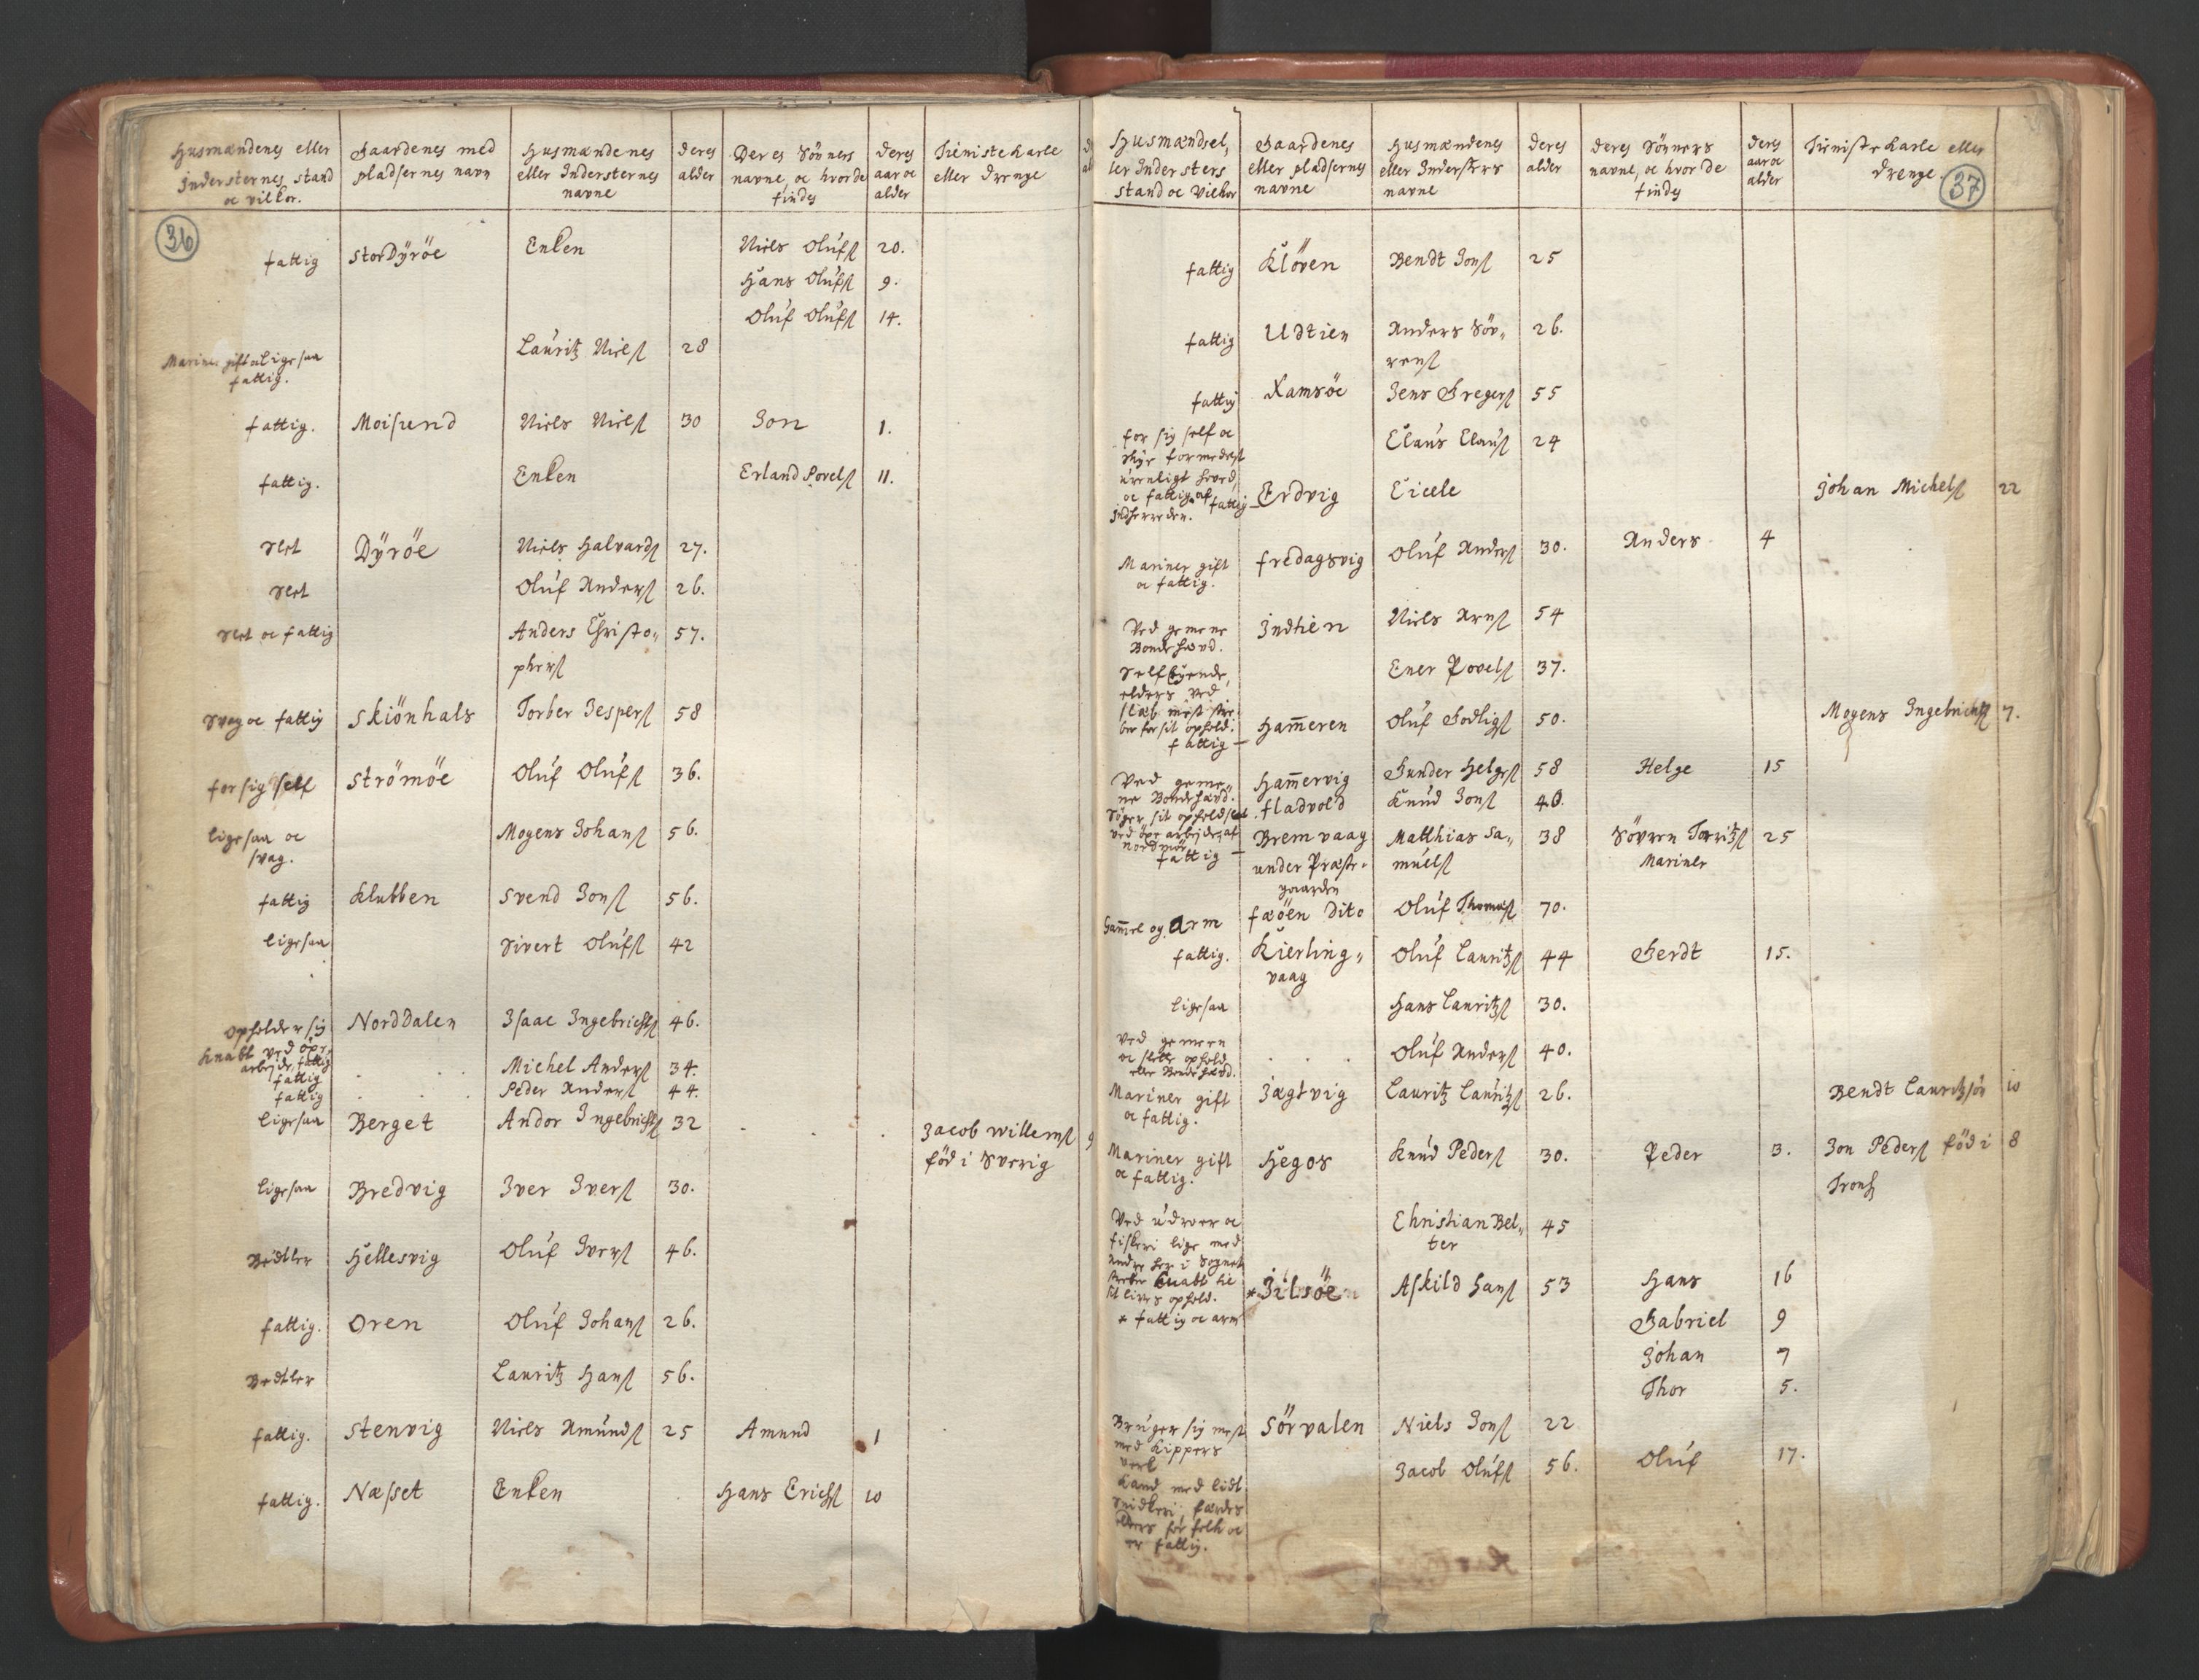 Husmændenes eller Indersternes stand oc vilkor. Gaardenes med pladsernes navn Husmændenes eller Indersternes navne deres alder Deres Sönners navne, oc hvor de findes deres aar oc alder Tieniste Karle eller drenge
36
fattig StorDÿröe Enken Niels Olufs. 20.
Hans Olufs. 9.
Oluf Olufs. 14.
Mariner gift oc ligesaa fattig. Lauritz Niels. 28
fattig. Moisund Niels Niels. 30 Jon 1.
fattig. Enken Erland Povels. 11.
slet Dÿröe Niels Halvards. 27.
slet Oluf Anders. 26.
slet oc fattig Anders Christo-
phers. 57.
svag oc fattig Skiönhals Torber Jespers. 58
for sig self Strömöe Oluf Olufs. 36.
ligesaa oc svag. Mogens Johans. 56.
fattig Klubben Svend Jons. 56.
ligesaa Sivert Olufs. 42
opholder sig knabt ved öxe arbejde, fattig Norddalen Isaac Ingebrichts. 46.
fattig Michel Anders. 34.
fattig Peder Anders. 44.
ligesaa Berget Andor Ingebrichts. 32 Jacob Willems. 9
föd i Sverig
ligesaa Bredvig Iver Ivers. 30.
Bedtler Hellesvig Oluf Ivers. 46.
fattig. Oren Oluf Johans. 26.
Bedtler Lauritz Hans. 56.
fattig. Stenvig Niels Amunds. 25 Amund 1
fattig. Næsset Enken Hans Erichs. 10
Husmændsel, ler Indersters stand oc Vielkor Gaardenes eller pladsernes navne Husmændenes eller Inderstes navne deres alder deres Sönners navne, oc hvor de findes deres aar oc alder Tieniste Karle eller drenge.
37
fattig Klöven Bendt Jons. 25
fattig Udtien Anders Söv-
rens. 26.
fattig Ramsöe Jens Gregers. 55
for sig self oc Claus Claus. 24
oc fattig af
Indherreden. fattig Erdvig Eicele Johan Michels. 22
Mariner gift oc fattig. fredagsvig Oluf Anders. 30. Anders 4
Ved gemene Bonde hævd. Indtien Niels Arns. 54
Selfeyende, elders ved Ener Povels. 37.
ber for sit ophold.
fattig Hammeren Oluf Bodligs. 50. Mogens Ingebrichts. 7.
Ved geme-
ne Bonde hævd. Hammervig Gunder Helges. 58 Helge 15
Söger sit ophold fladvold Knud Jons. 40.
ved öxe arbejde, af Nordmör
fattig Bremvaag
under Præste-
gaarden Matthias Sa-
muels. 38 Sövren Torritz.
Mariner 25
Gammel og arm fæöen dito Oluf Thomas. 70.
fattig. Kierling-
vaag Oluf Lauritz. 44 Gerdt 15.
ligesaa Hans Lauritz. 30.
Ved gemeen oc slette ophold eller Bonde hævd. Oluf Anders. 40.
Mariner gift oc fattig. Jægtvig Lauritz Lauritz. 26. Bendt Lauritzsön 10
Mariner gift oc fattig. Hegos Knud Peders. 30. Peder 3. Jon Peders. föd i
Tronh. 8
Ved udroer oc fiskeri lige med andre her i Sognet Christian Bel-
ter 45
knabt til
sit livs ophold. * Jilsöe Askild Hans. 53 Hans 16
* fattig oc arm Gabriel 9
Johan 7
Thor 5.
Bruger sig mest med Kippers verk Sörvalen Niels Jons. 22
Kand med lidt Snidkeri, færdes elders for folk oc er fattig. Jacob Olufs. 56. Oluf 17.